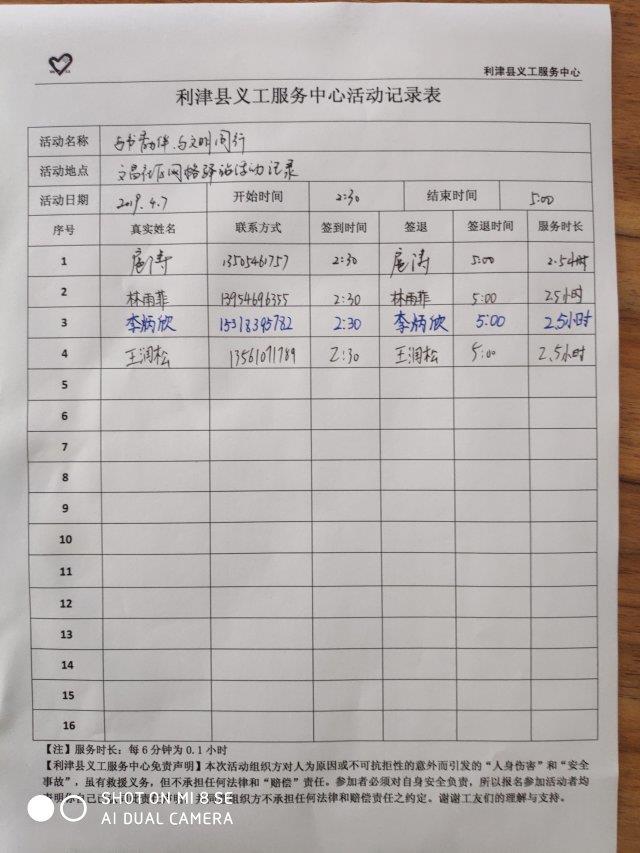 利津县义工服务中心
利津县义工服务中心活动记录表
活动名称 与书香为伴、与文明同行
活动地点 文昌社区网格驿站活动记录
活动日期 2019.4.7 开始时间 2:30 结束时间 5:00
序号 真实姓名 联系方式 签到时间 签退 签退时间 服务时长
1 扈涛 13505461757 2:30 扈涛 5:00 2.5小时
2 林雨菲 13954696355 2:30 林雨菲 5:00 2.5小时
3 李炳欣 15318395782 2:30 李炳欣 5:00 2.5小时
4 王润松 13561071789 2:30 王润松 5:00 2.5小时
5
6
7
8
9
10
11
12
13
14
15
16
【注】服务时长：每6分钟为0.1小时
【利津县义工服务中心免责声明】本次活动组织方对人为原因或不可抗拒性的意外而引发的“人身伤害”和“安全
事故”，虽有救援义务，但不承担任何法律和“赔偿”责任。参加者必须对自身安全负责，所以报名参加活动者均
组织方不承担任何法律和赔偿责任之约定。谢谢工友们的理解与支持。
SHOT ON MI 8 SE
AI DUAL CAMERA